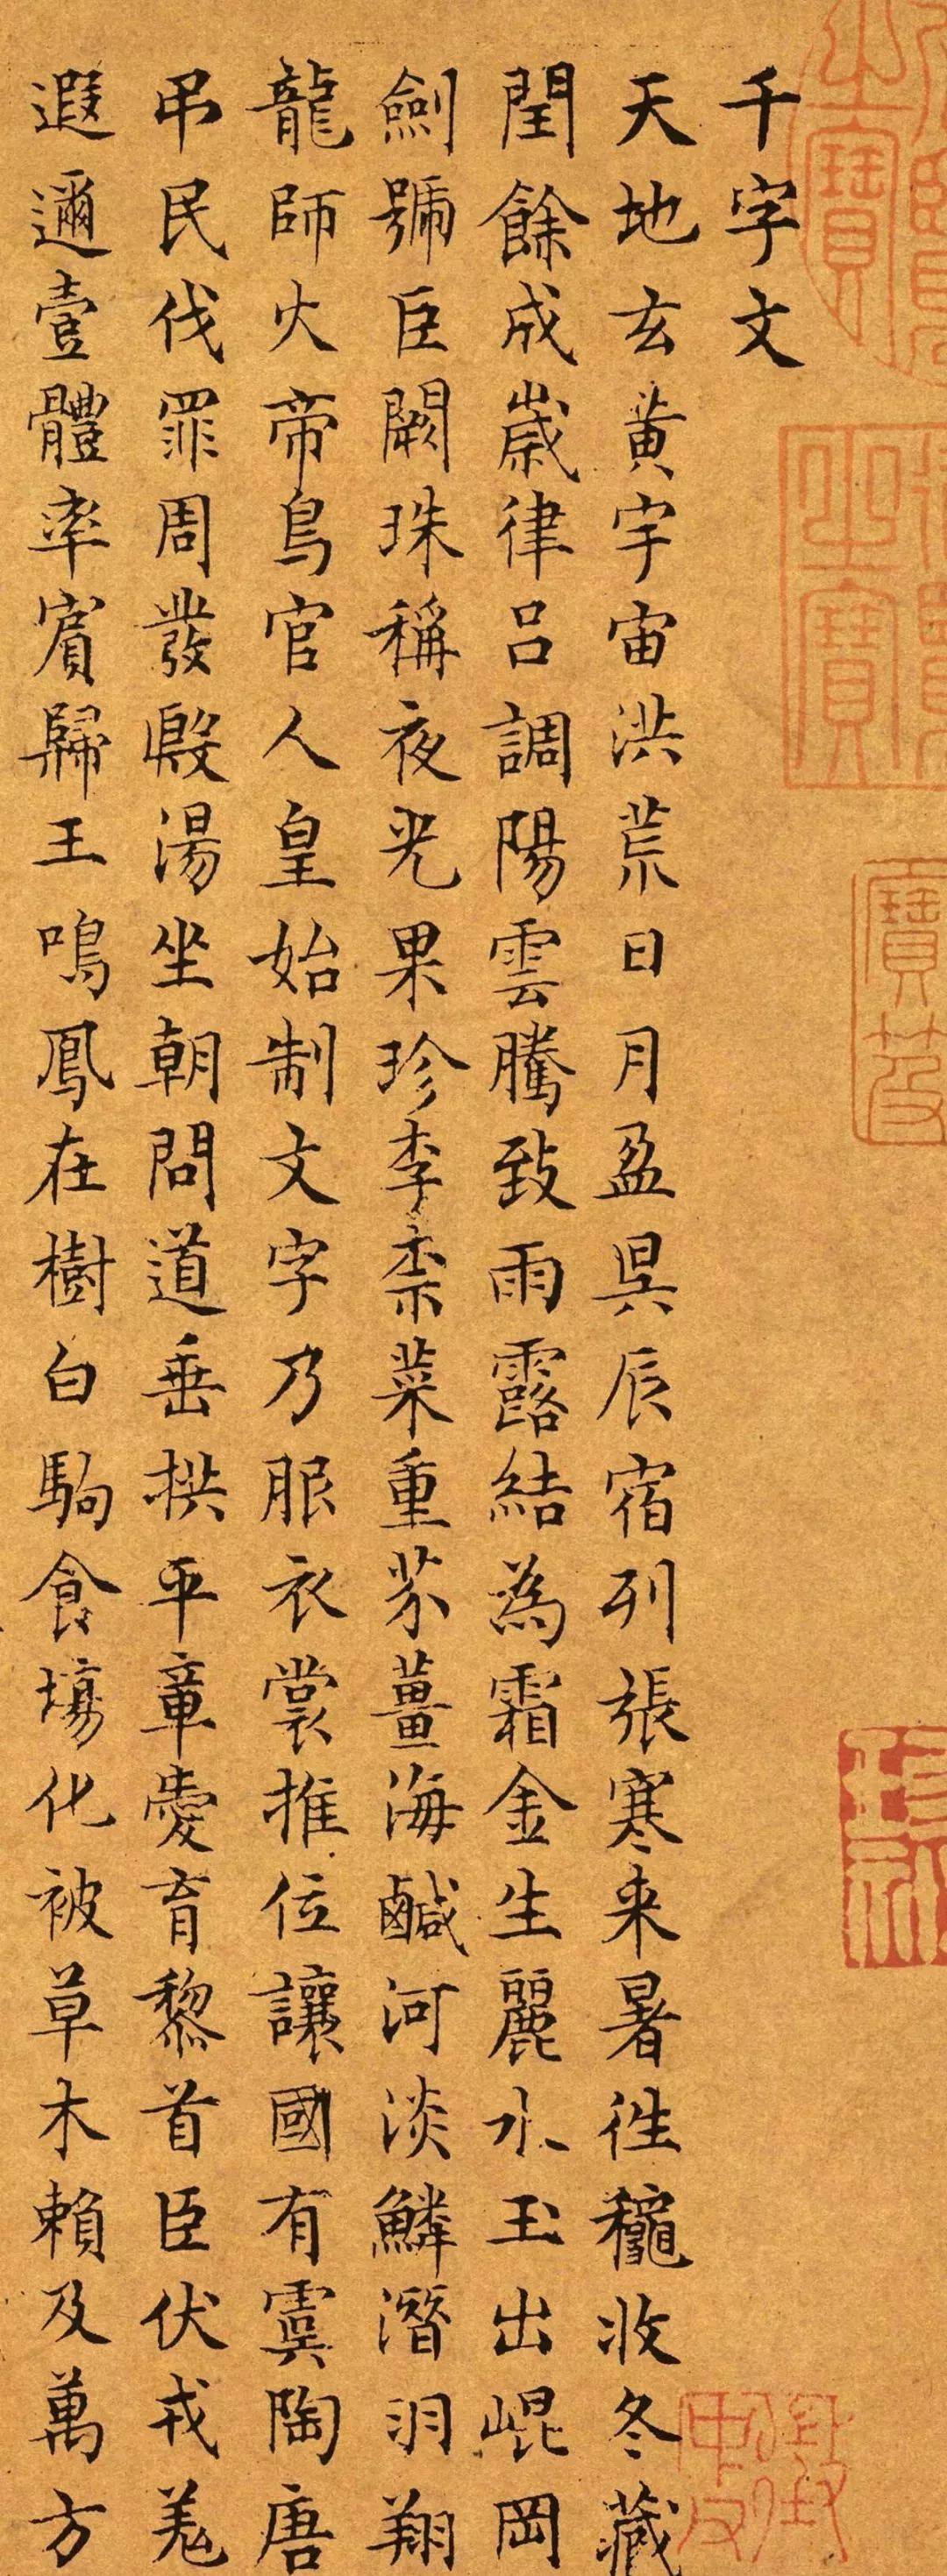 千字文
天地玄黃宇宙洪荒日月盈昃辰宿列張寒来暑往穐收冬藏
閏餘成歲律吕調陽雲騰致雨露結為霜金生麗水玉出崐岡
劍號臣闕珠稱夜光果珍李柰菜重芥薑海鹹河淡鱗潛羽翔
龍師火帝鳥官人皇始制文字乃服衣裳推位讓國有虞陶唐
弔民伐罪周發殷湯坐朝問道垂拱平章愛育黎首臣伏戎羌
遐邇壹體率賓歸王鳴鳳在樹白駒食場化被草木賴及萬方
之寶
之寶